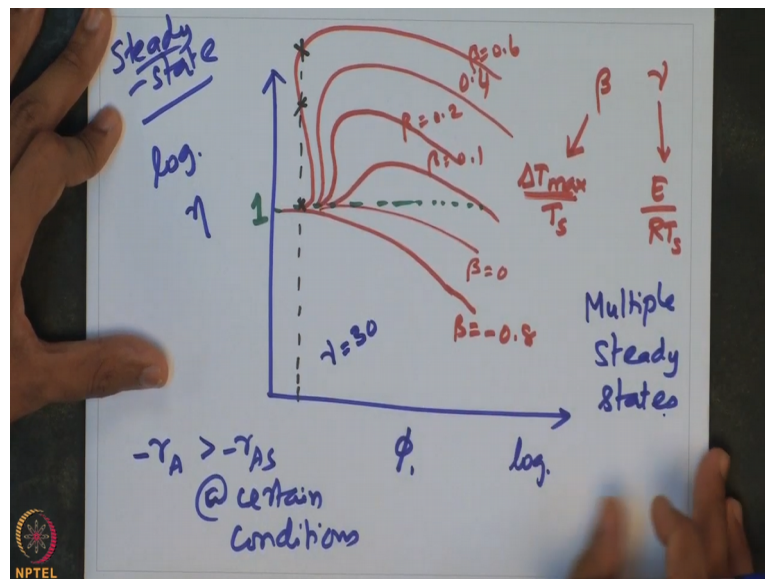 Steady
-state
log.
η
1
β=0.6
0.4
β=0.2
β=0.1
β=0
β=-0.8
γ=30
β γ
ΔTmax/Ts
E/RTs
Multiple
Steady
States
-rA > -rAS
@ certain
conditions
ϕ1 log.
NPTEL